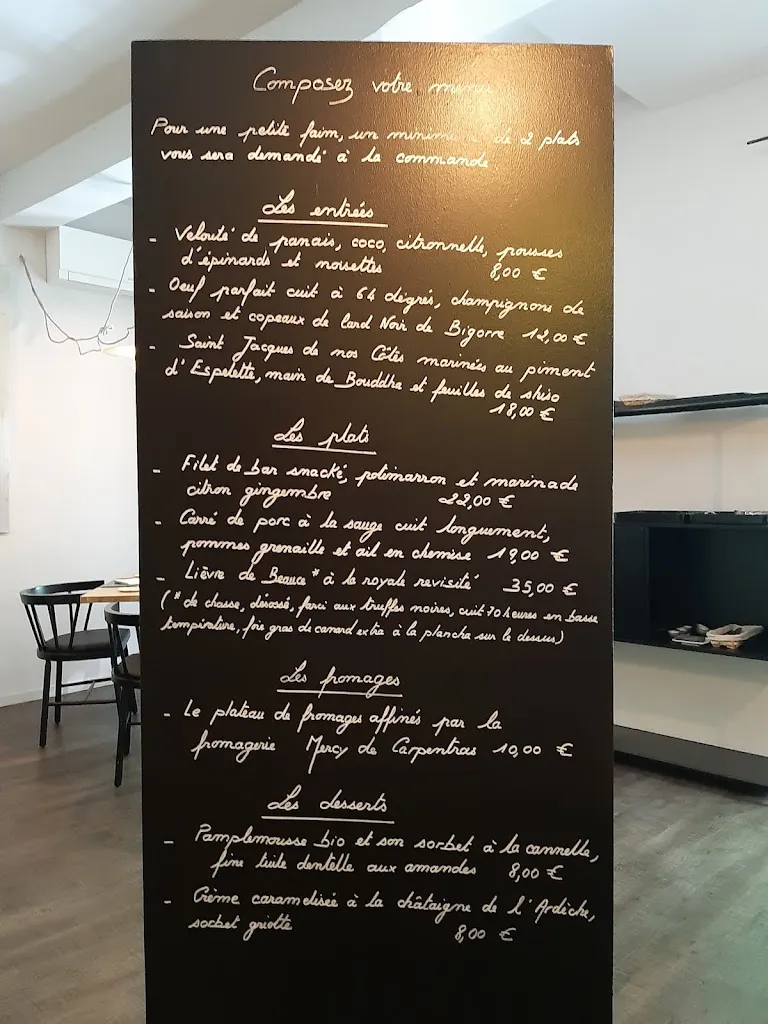 Composez votre menu
Pour une petite faim, un minimum de 2 plats
vous sera demandé à la commande
Les entrées
- Velouté de panais, coco, citronnelle, pousses
d'épinards et noisettes 8,00 €
- Oeuf parfait cuit à 64 degrés, champignons de
saison et copeaux de lard Noir de Bigorre 12,00 €
- Saint Jacques de nos Côtes marinées au piment
d'Espelette, main de Bouddha et feuilles de shiso
18,00 €
Les plats
- Filet de bar snacké, potimarron et marinade
citron gingembre 22,00 €
- Carré de porc à la sauge cuit longuement,
pommes grenaille et ail en chemise 19,00 €
- Lièvre de Beauce * à la royale revisité 35,00 €
(* de chasse, désossé, farci aux truffes noires, cuit 70 heures en basse
température, foie gras de canard extra à la plancha sur le dessus)
Les fromages
- Le plateau de fromages affinés par la
fromagerie Mercy de Carpentras 10,00 €
Les desserts
- Pamplemousse bio et son sorbet à la cannelle,
fine tuile dentelle aux amandes 8,00 €
- Crème caramelisée à la châtaigne de l'Ardèche,
sorbet griotte 8,00 €